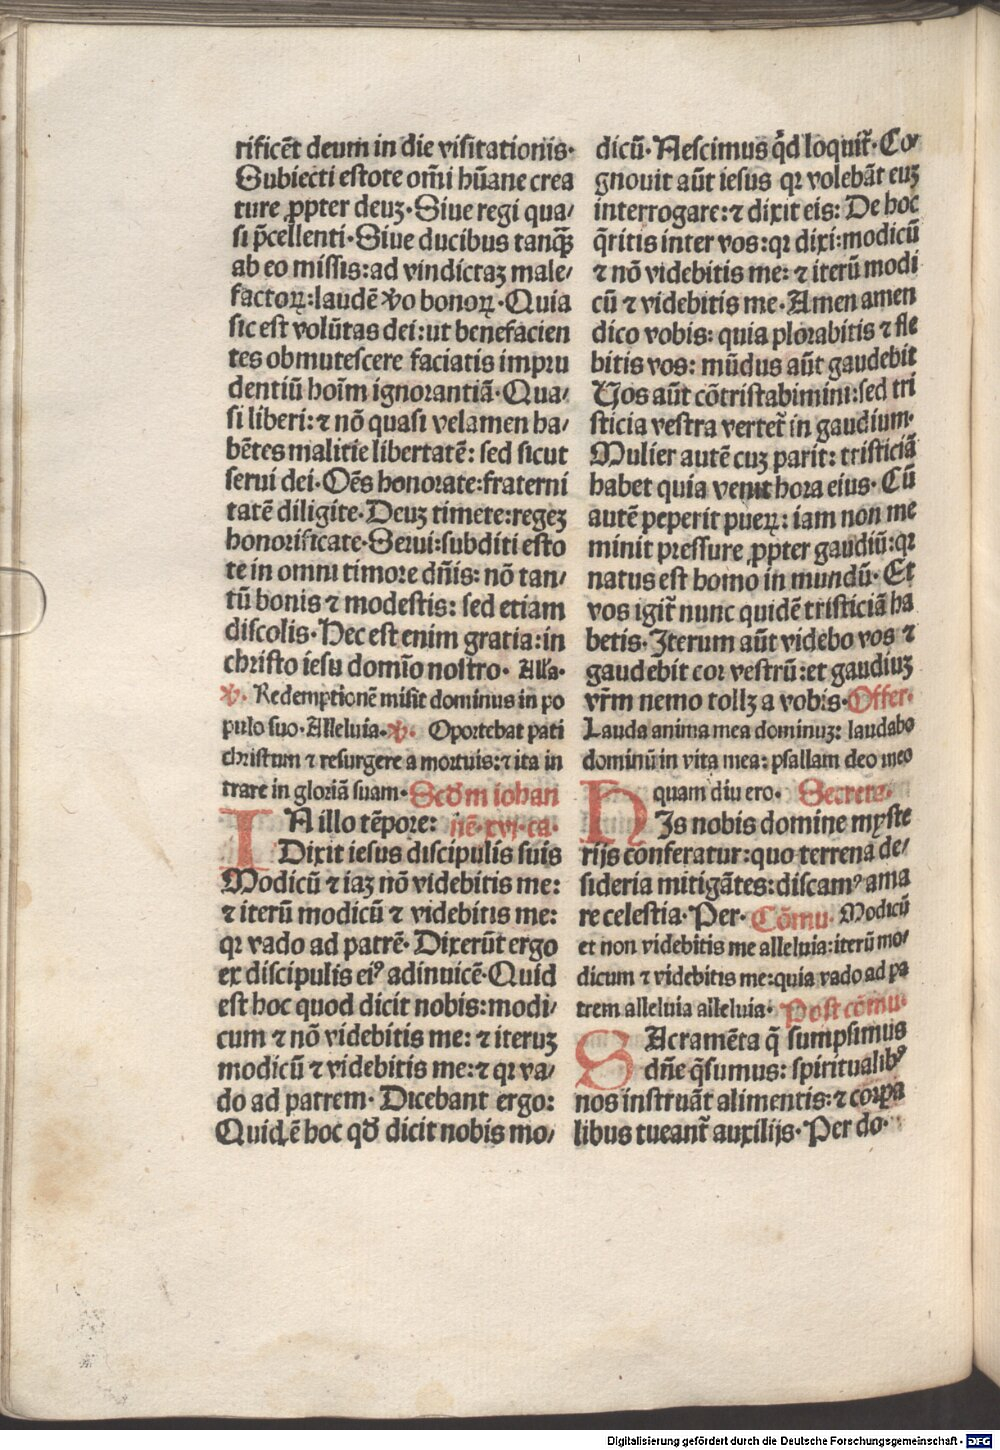 rificẽt deum in die visitationis·
Subiecti estote om̃i hũane crea
ture ꝓpter deuȝ·Siue regi qua/
si p̃cellenti·Siue ducibus tanqȝ̃
ab eo missis:ad vindictaȝ male/
factoꝝ:laudẽ ꝟo bonoꝝ·Quia
sic est volũtas dei:ut benefacien
tes obmutescere faciatis impru
dentiũ hoĩm ignorantiã·Qua/
si liberi:⁊ nõ quasi velamen ha/
bẽtes malitie libertatẽ: sed sicut
serui dei·Oẽs honorate:fraterni
tatẽ diligite·Deuȝ timete:regeȝ
honorificate·Serui:subditi esto
te in omni timore dñis: nõ tan/
tũ bonis ⁊ modestis: sed etiam
discolis·Hec est enim gratia:in
christo iesu domĩo nostro· Alľa·
℣· Redemptionẽ misit dominus in po
pulo suo·Alleluia·℣· Oportebat pati
christum ⁊ resurgere a mortuis:⁊ ita in
trare in gloriã suam·Scđm iohan
IN illo tẽpore: nẽ·xvi·ca·
Dixit iesus discipulis suis
Modicũ ⁊ iaȝ nõ videbitis me:
⁊ iterũ modicũ ⁊ videbitis me:
qꝛ vado ad patrẽ· Dixerũt ergo
ex discipulis eiꝰ adinuicẽ·Quid
est hoc quod dicit nobis:modi/
cum ⁊ nõ videbitis me: ⁊ iteruȝ
modicũ ⁊ videbitis me:⁊ qꝛ va/
do ad patrem· Dicebant ergo:
Quid ẽ hoc qđ dicit nobis mo/
dicũ·Nescimus qͥd loquit̃·Co
gnouit aũt iesus qꝛ volebãt euȝ
interrogare:⁊ dixit eis: De hoc
q̃ritis inter vos:qꝛ dixi:modicũ
⁊ nõ videbitis me: ⁊ iterũ modi
cũ ⁊ videbitis me·Amen amen
dico vobis: quia plorabitis ⁊ fle
bitis vos: mũdus aũt gaudebit
Vos aũt cõtristabimini:sed tri
sticia vestra vertet̃ in gaudium·
Mulier autẽ cuȝ parit: tristiciã
habet quia venit hora eius· Cũ
autẽ peperit pueꝝ: iam non me
minit pressure ꝓpter gaudiũ:qꝛ
natus est homo in mundũ· Et
vos igit̃ nunc quidẽ tristiciã ha
betis·Iterum aũt videbo vos ⁊
gaudebit cor vestrũ:et gaudiuȝ
vr̃m nemo tollȝ a vobis·Offer·
Lauda anima mea dominuȝ: laudabo
dominũ in vita mea: psallam deo meo
quam diu ero· Secreta·
HIs nobis domine myste
rijs conferatur:quo terrena de/
sideria mitigãtes:discamꝰ ama
re celestia·Per· Cõmu· Modicũ
et non videbitis me alleluia:iterũ mo/
dicum ⁊ videbitis me:quia vado ad pa
trem alleluia alleluia· Post cõmu·
SAcramẽta q̃ sumpsimus
dñe q̃sumus: spiritualibꝰ
nos instruãt alimentis:⁊ corpa
libus tueant̃ auxilijs·Per do·
Digitalisierung gefördert durch die Deutsche Forschungsgemeinschaft - DFG